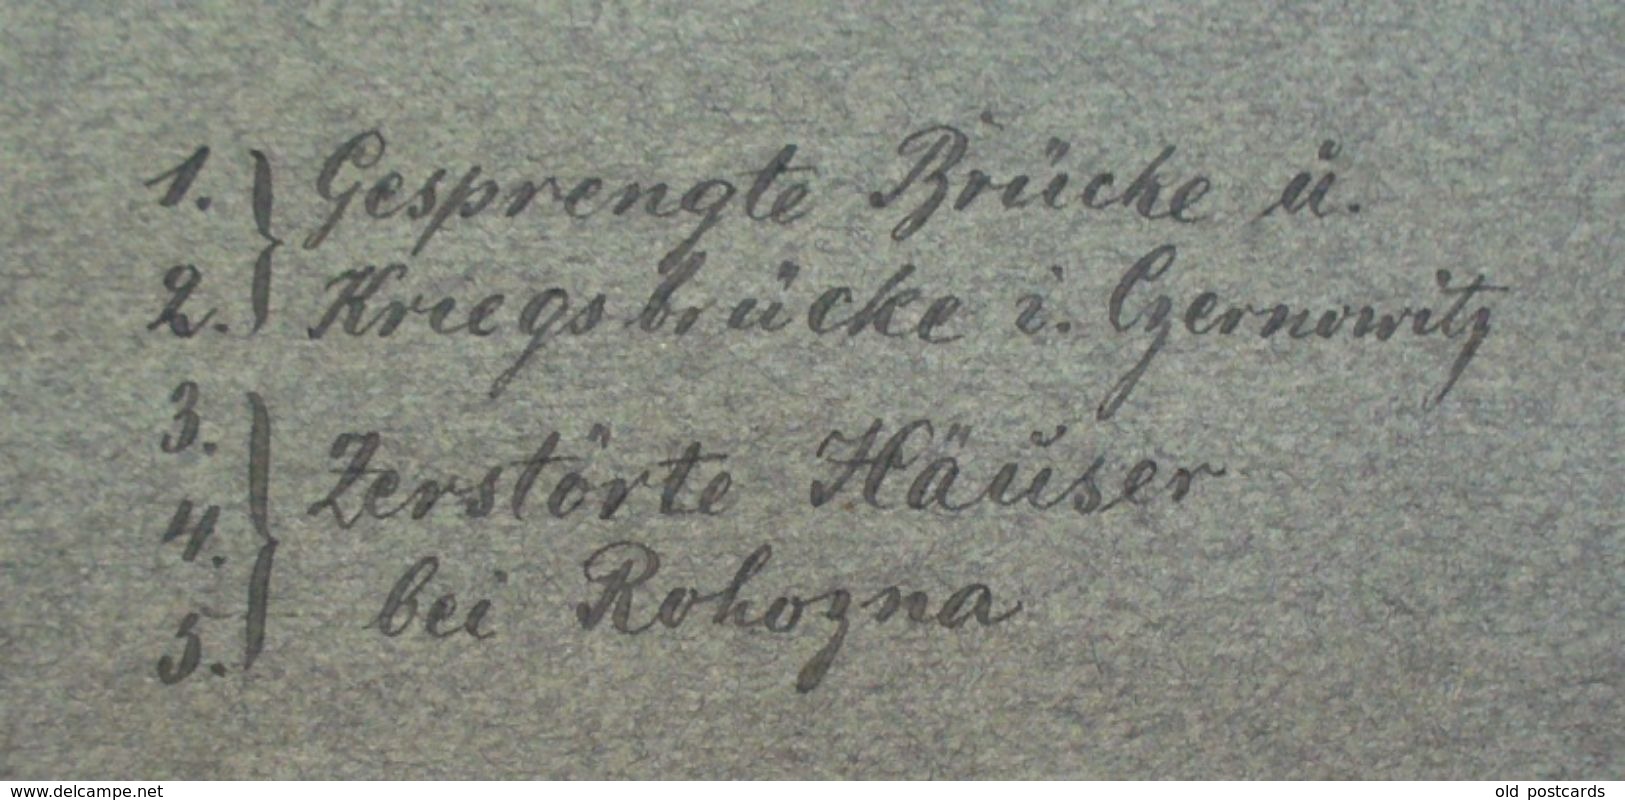 1. } Gesprengte Brücke u.
2. } Kriegsbrücke i. Czernowitz
3. }
4. } Zerstörte Häuser
5. } bei Rohozna
www.delcampe.net
old postcards